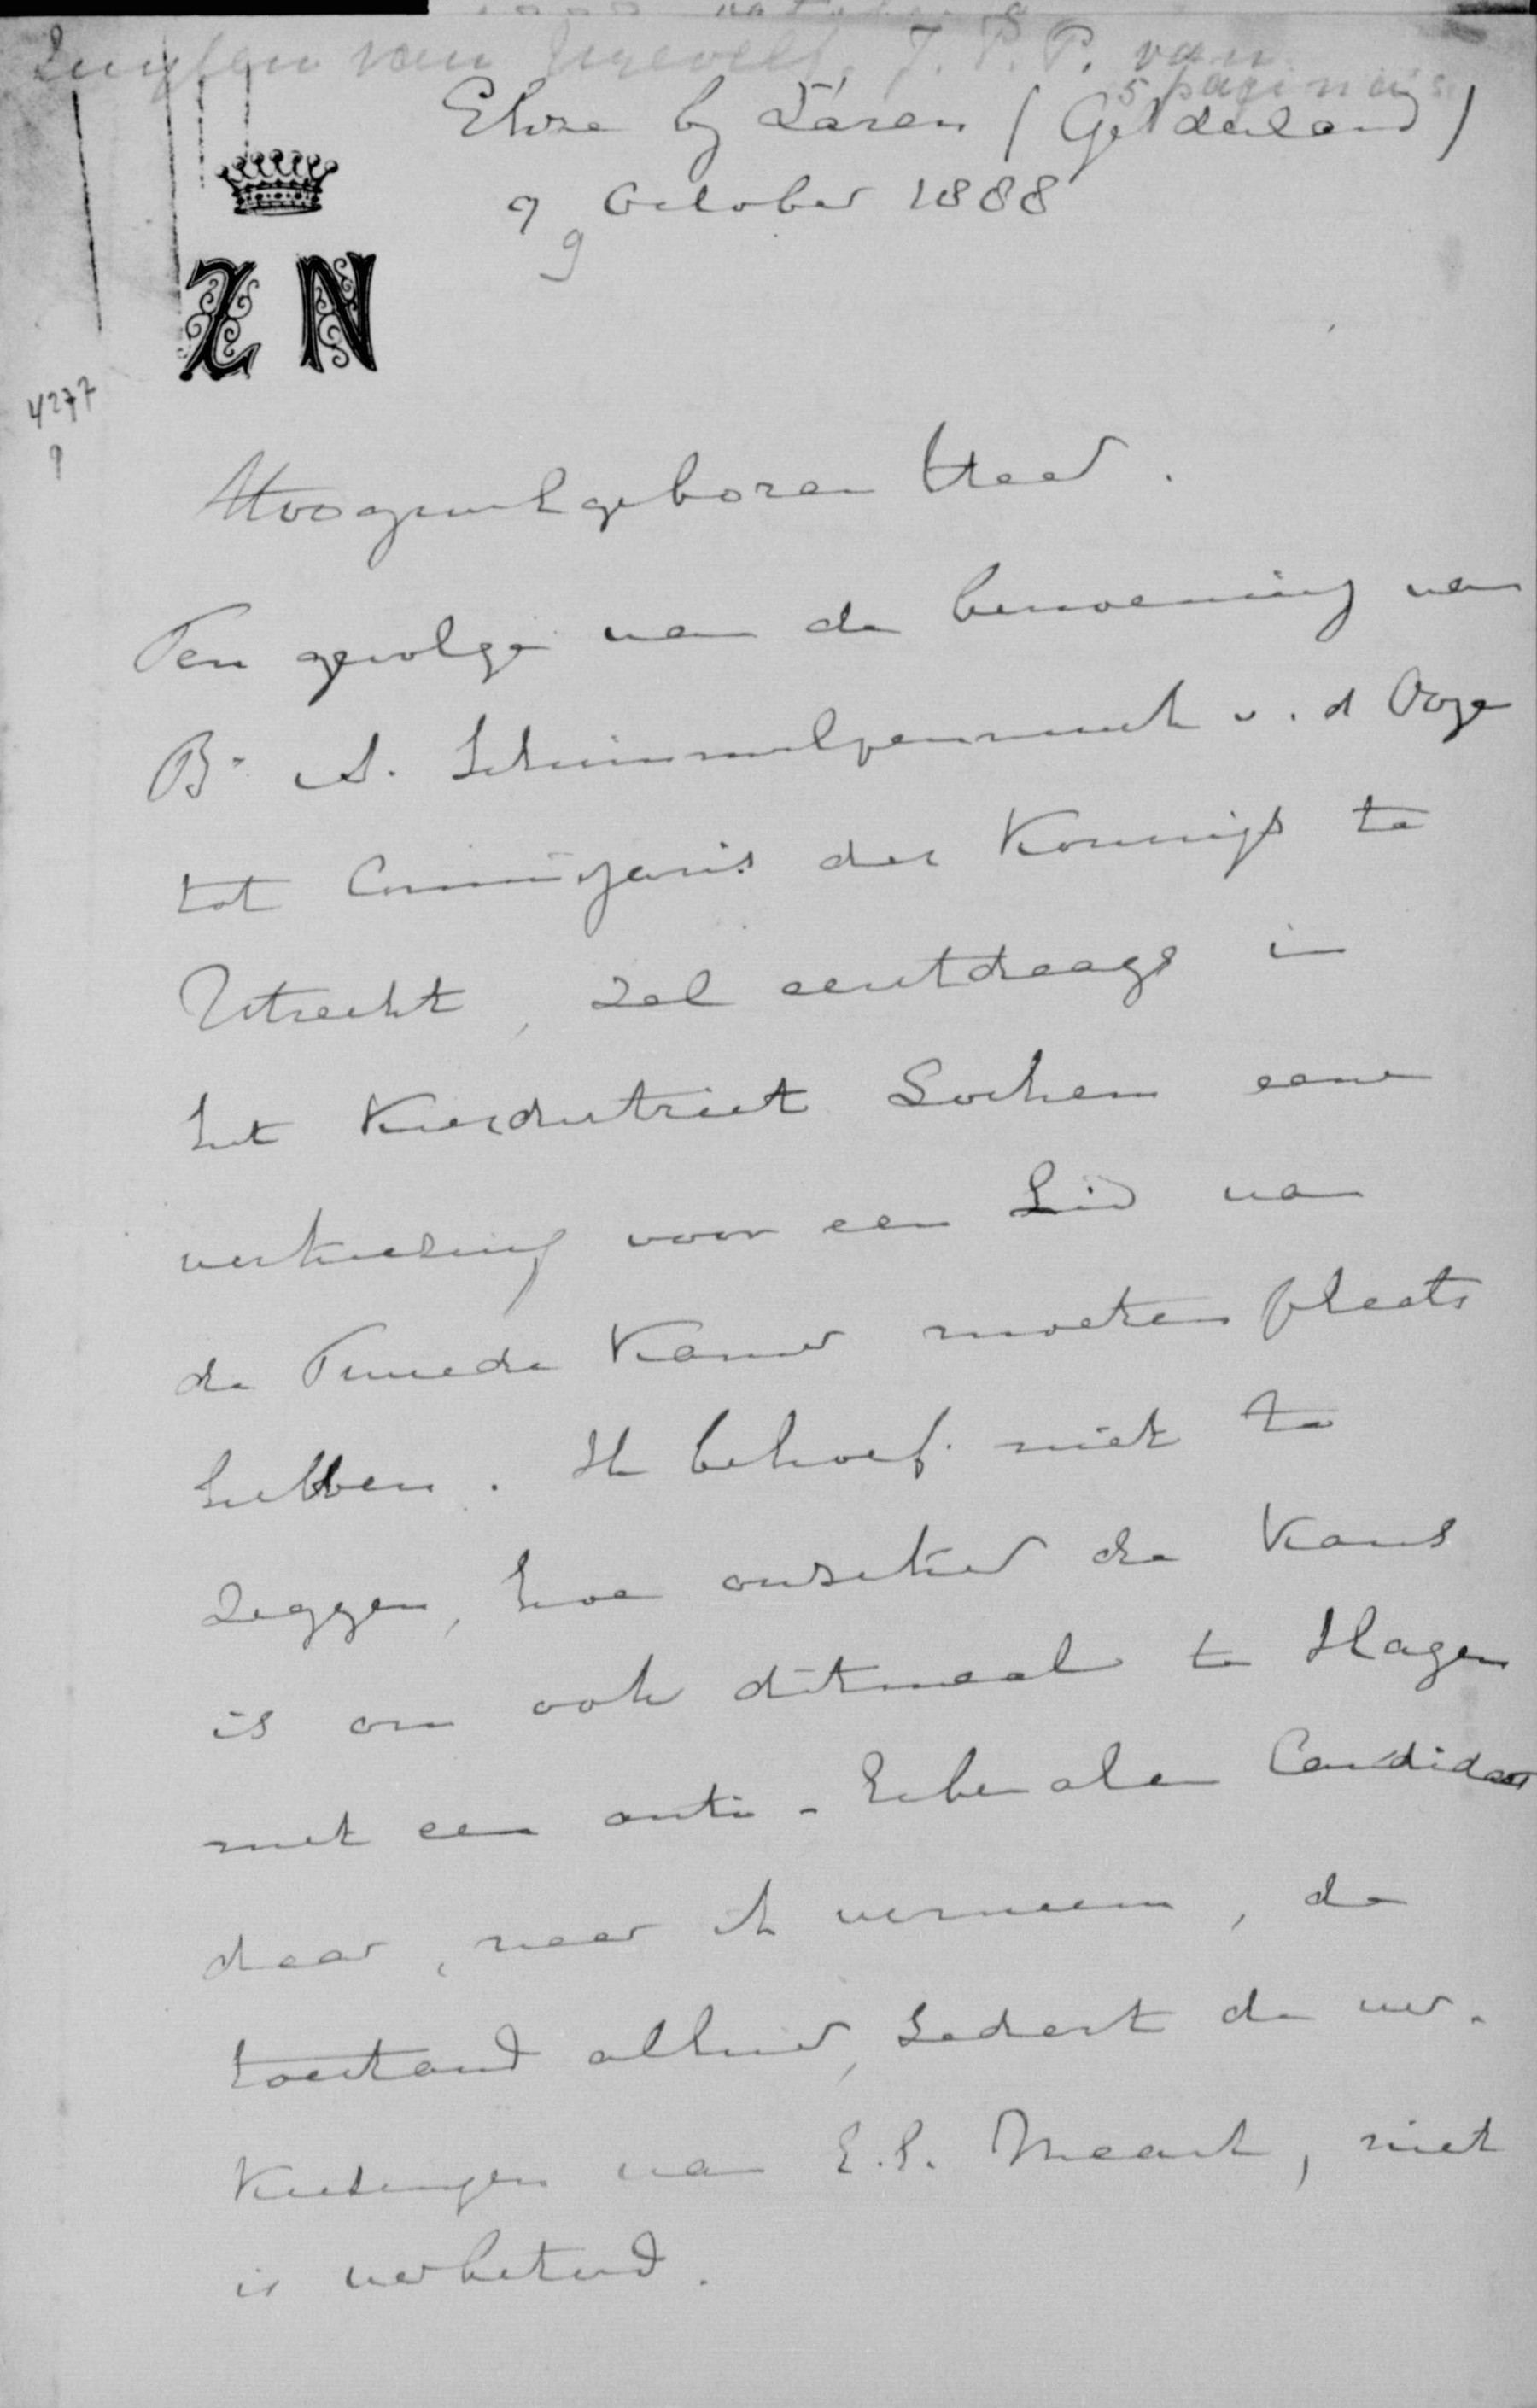 Zuylen van Nyevelt, J. P. P. van
5 pagina's
Elze by Laren (Gelderland)
9 October 1888
9
Z N
4277
Hoogwelgeboren Heer.
Ten gevolge van de benoeming van
Bn A. Schimmelpenninck v. d Oye
tot Commissaris des Konings te
Utrecht, zal eerstdaags in
het Kiesdistrict Lochem eene
verkiezing voor een Lid van
de Tweede Kamer moeten plaats
hebben. Ik behoef niet te
zeggen, hoe onzeker de kans
is om ook ditmaal te slagen
met een anti-liberalen Candidaat
daar, naar ik verneem, de
toestand alhier, sedert de ver-
kiezingen van E.l. Maart, niet
is verbeterd.